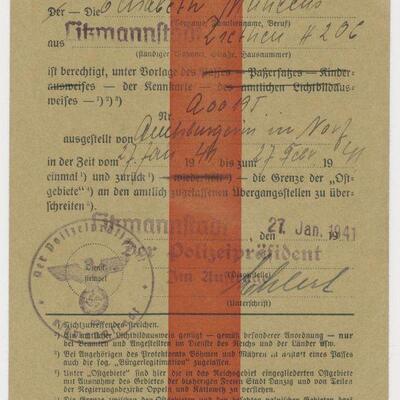 Der — Die Elisabeth
(Vorname, Familienname, Beruf)
aus Litzmannstadt
(ständiger Wohnort, Straße, Hausnummer)
ist berechtigt, unter Vorlage des Passes — Paßersatzes — Kinder-
ausweises — der Kennkarte — des amtlichen Lichtbildaus-
weises — ¹) ²) ³)
Nr. A00195
ausgestellt von Amtsbürgerm in
in der Zeit vom 27. Jan 1941 bis zum 27 Febr 1941
einmal ¹) und zurück ¹) — wiederholt ¹) — die Grenze der „Ost-
gebiete“ ⁴) an den amtlich zugelassenen Übergangsstellen zu über-
schreiten ⁵).
Litzmannstadt, den 27. Jan. 1941
Der Polizeipräsident
Im Auftrag
(Dienststelle)
Dienst-
stempel
Der Polizeipräsident
(Unterschrift)
¹) Nichtzutreffendes streichen.
²) Ein amtlicher Lichtbildausweis genügt — gemäß besonderer Anordnung — nur
bei Beamten und Angestellten im Dienste des Reichs und der Länder usw.
³) Bei Angehörigen des Protektorats Böhmen und Mähren ist anstatt eines Passes
auch die sog. „Bürgerlegitimation“ zugelassen.
⁴) Unter „Ostgebiete“ sind hier die in das Reichsgebiet eingegliederten Ostgebiete
mit Ausnahme des Gebietes der bisherigen Freien Stadt Danzig und von Teilen
der Regierungsbezirke Oppeln und Kattowitz zu verstehen.